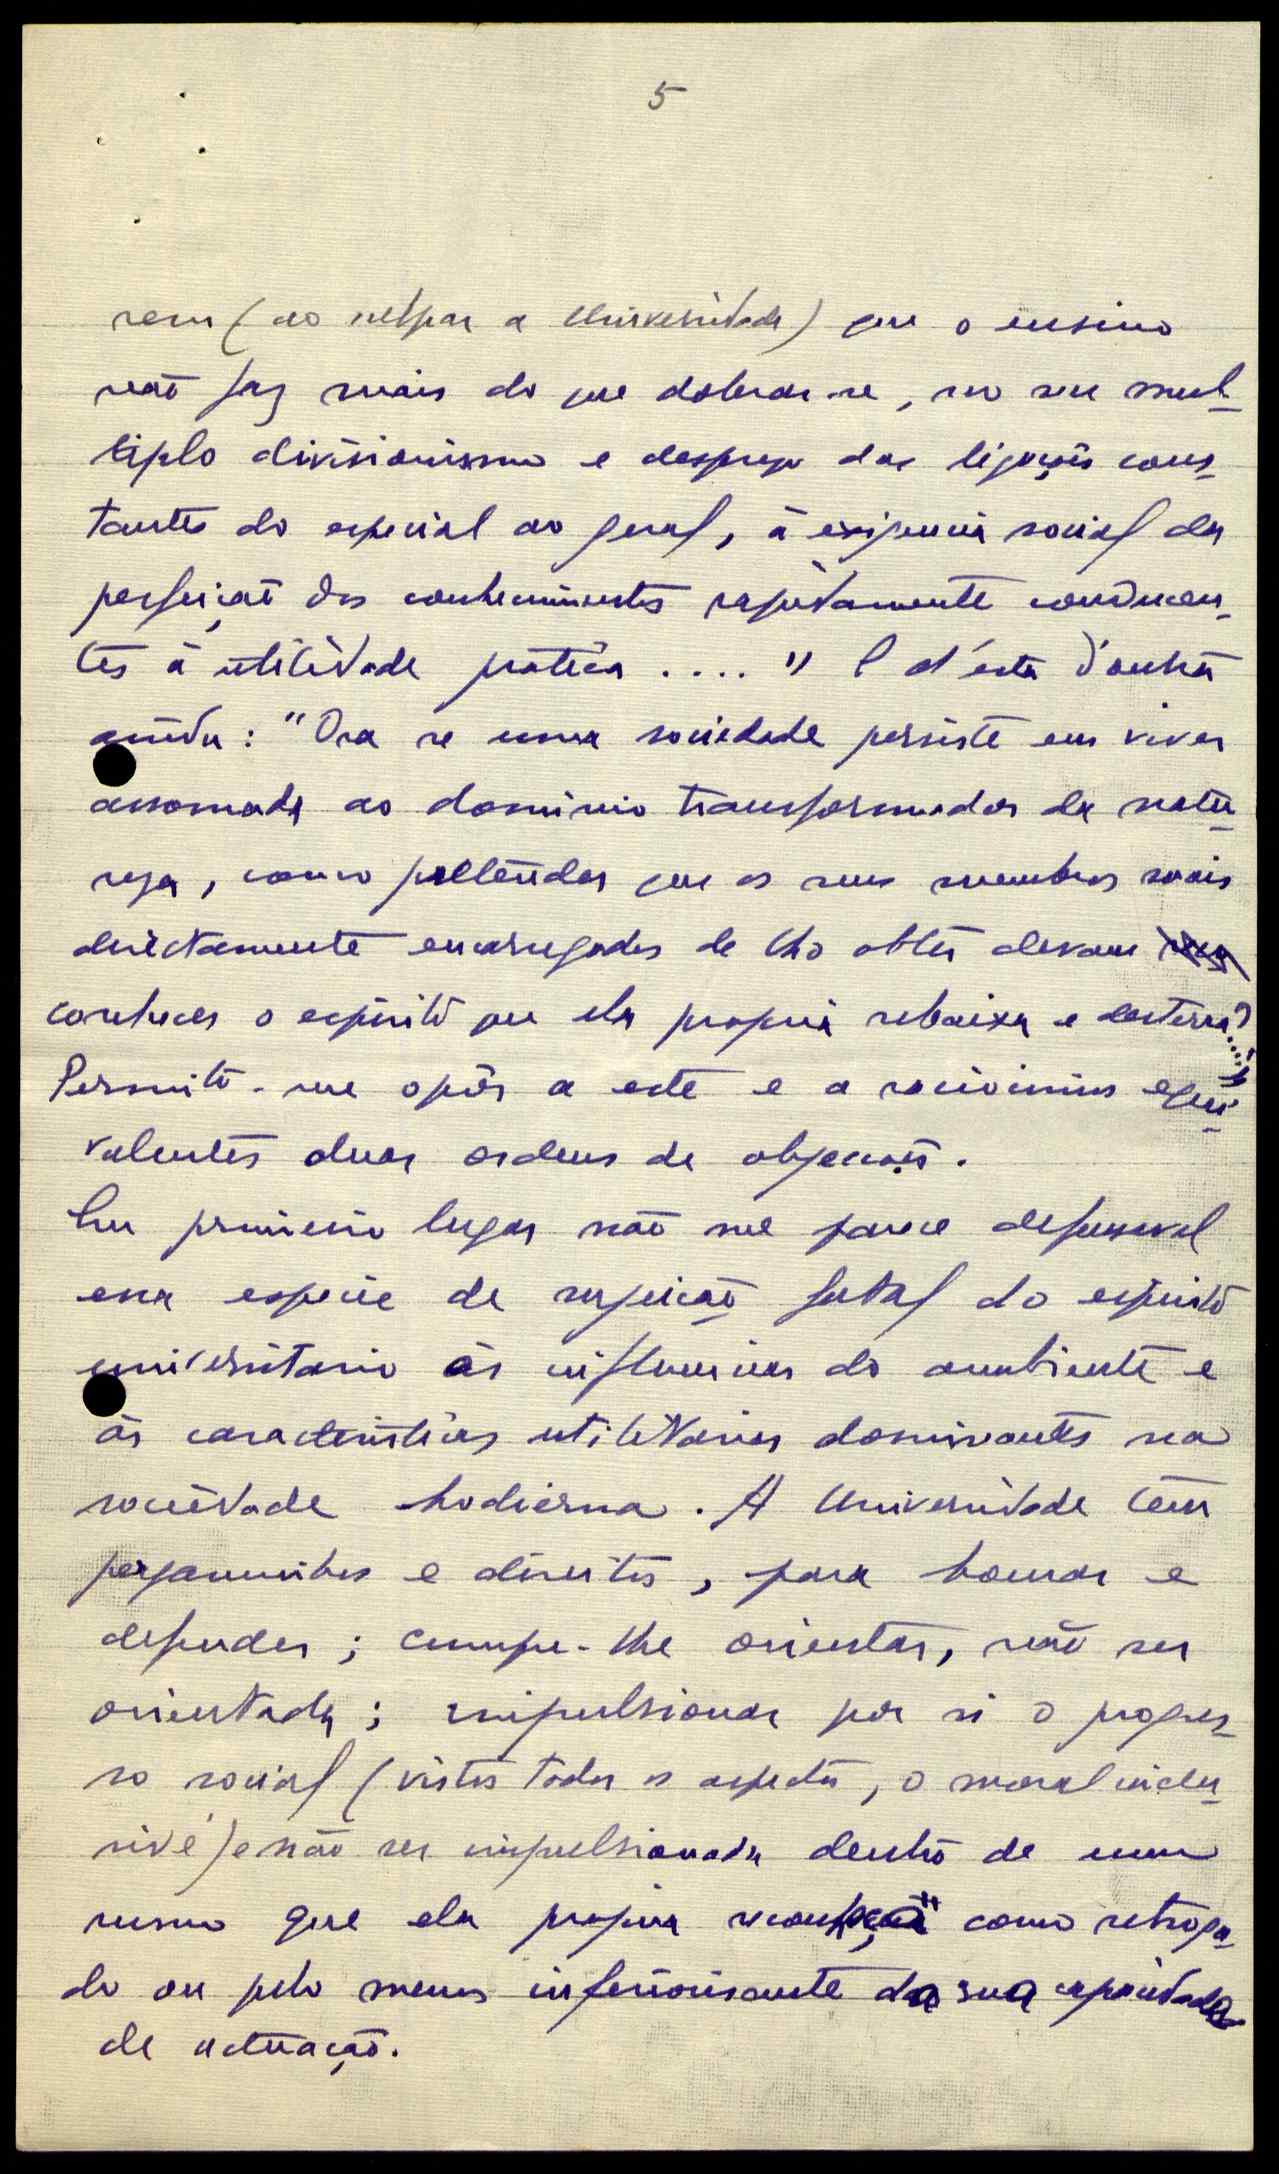 5
rem (ao culpar a Universidade) que o ensino
não faz mais do que dobrar-se, no seu mul-
tiplo divisionismo e desprezo das ligações cons-
tantes do especial ao geral, á exigencia social da
perfeição dos conhecimentos rapidamente conducen-
tes á utilidade pratica .... " E d'esta d'outra
ainda: "Ora se uma sociedade persiste em viver
assomada ao dominio transformador da natu-
reza, como pretender que os seus membros mais
directamente encarregados de lho obter devam
conhecer o espirito que ela propria rebaixa e desterra?...."
Permito-me opôr a este e a raciocinios equi-
valentes duas ordens de objecções.
Em primeiro lugar não me parece defensavel
essa especie de sujeição fatal do espirito
universitario ás influencias do ambiente e
ás caracteristicas utilitarias dominantes na
sociedade hodierna. A Universidade tem
pergaminhos e direitos, para honrar e
defender; cumpre-lhe orientar, não ser
orientada; impulsionar por si o progres-
so social (vistos todos os aspectos, o moral inclu-
sivé) e não ser impulsionada dentro de um
rumo que ela propria reconheça como retroga-
do ou pelo menos inferiorisante da sua capacidade
de actuação.